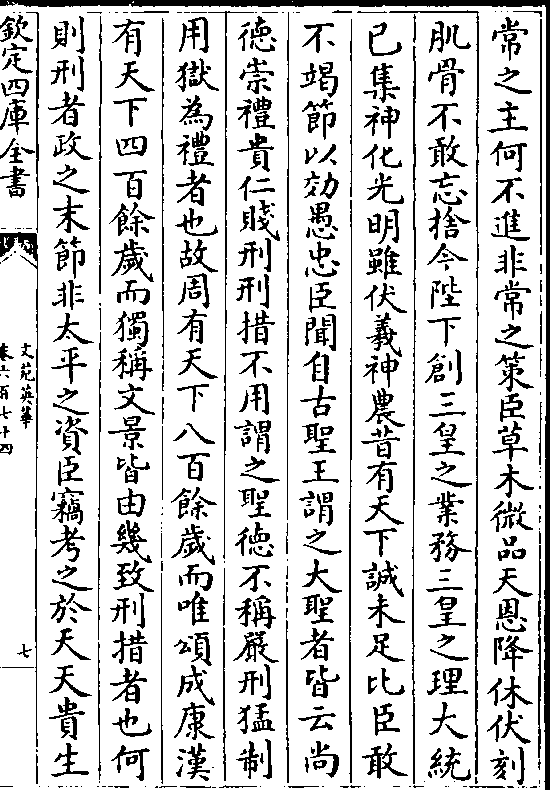 常之主何不進非常之策臣草木微品天恩降休伏刻
肌骨不敢忘捨今陛下創三皇之業務三皇之理大統
已集神化光明雖伏羲神農昔有天下誠未足比臣敢
不竭節以効愚忠臣聞自古聖王謂之大聖者皆云尚
德崇禮貴仁賤刑刑措不用謂之聖德不稱嚴刑猛制
用獄為禮者也故周有天下八百餘歲而唯頌成康漢
有天下四百餘歲而獨稱文景皆由幾致刑措者也何
則刑者政之末節非太平之資臣竊考之於天天貴生
欽定四庫全書
文苑英華
卷六百七十四
七